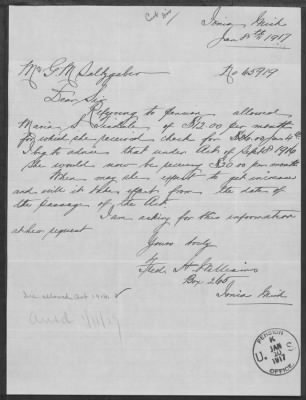 Ionia Mich
Jan 8th 1917
Mr G. M. Saltzgaber
No 45919
Dear Sir
Referring to Pension allowed
Maria S. of $12.00 per month
for which she received check for $36.00 Jan 4th
I beg to advise that under Act of Sept 8 1916
She would now be receiving $20.00 per month
When may she expect to get increase
and will it take effect from the date of
the passage of the Act.
I am asking for this information
at her request
Yours truly
Fred. H. Williams
Box 268
Ionia Mich
PENSION
K
JAN
10
1917
U. S.
OFFICE